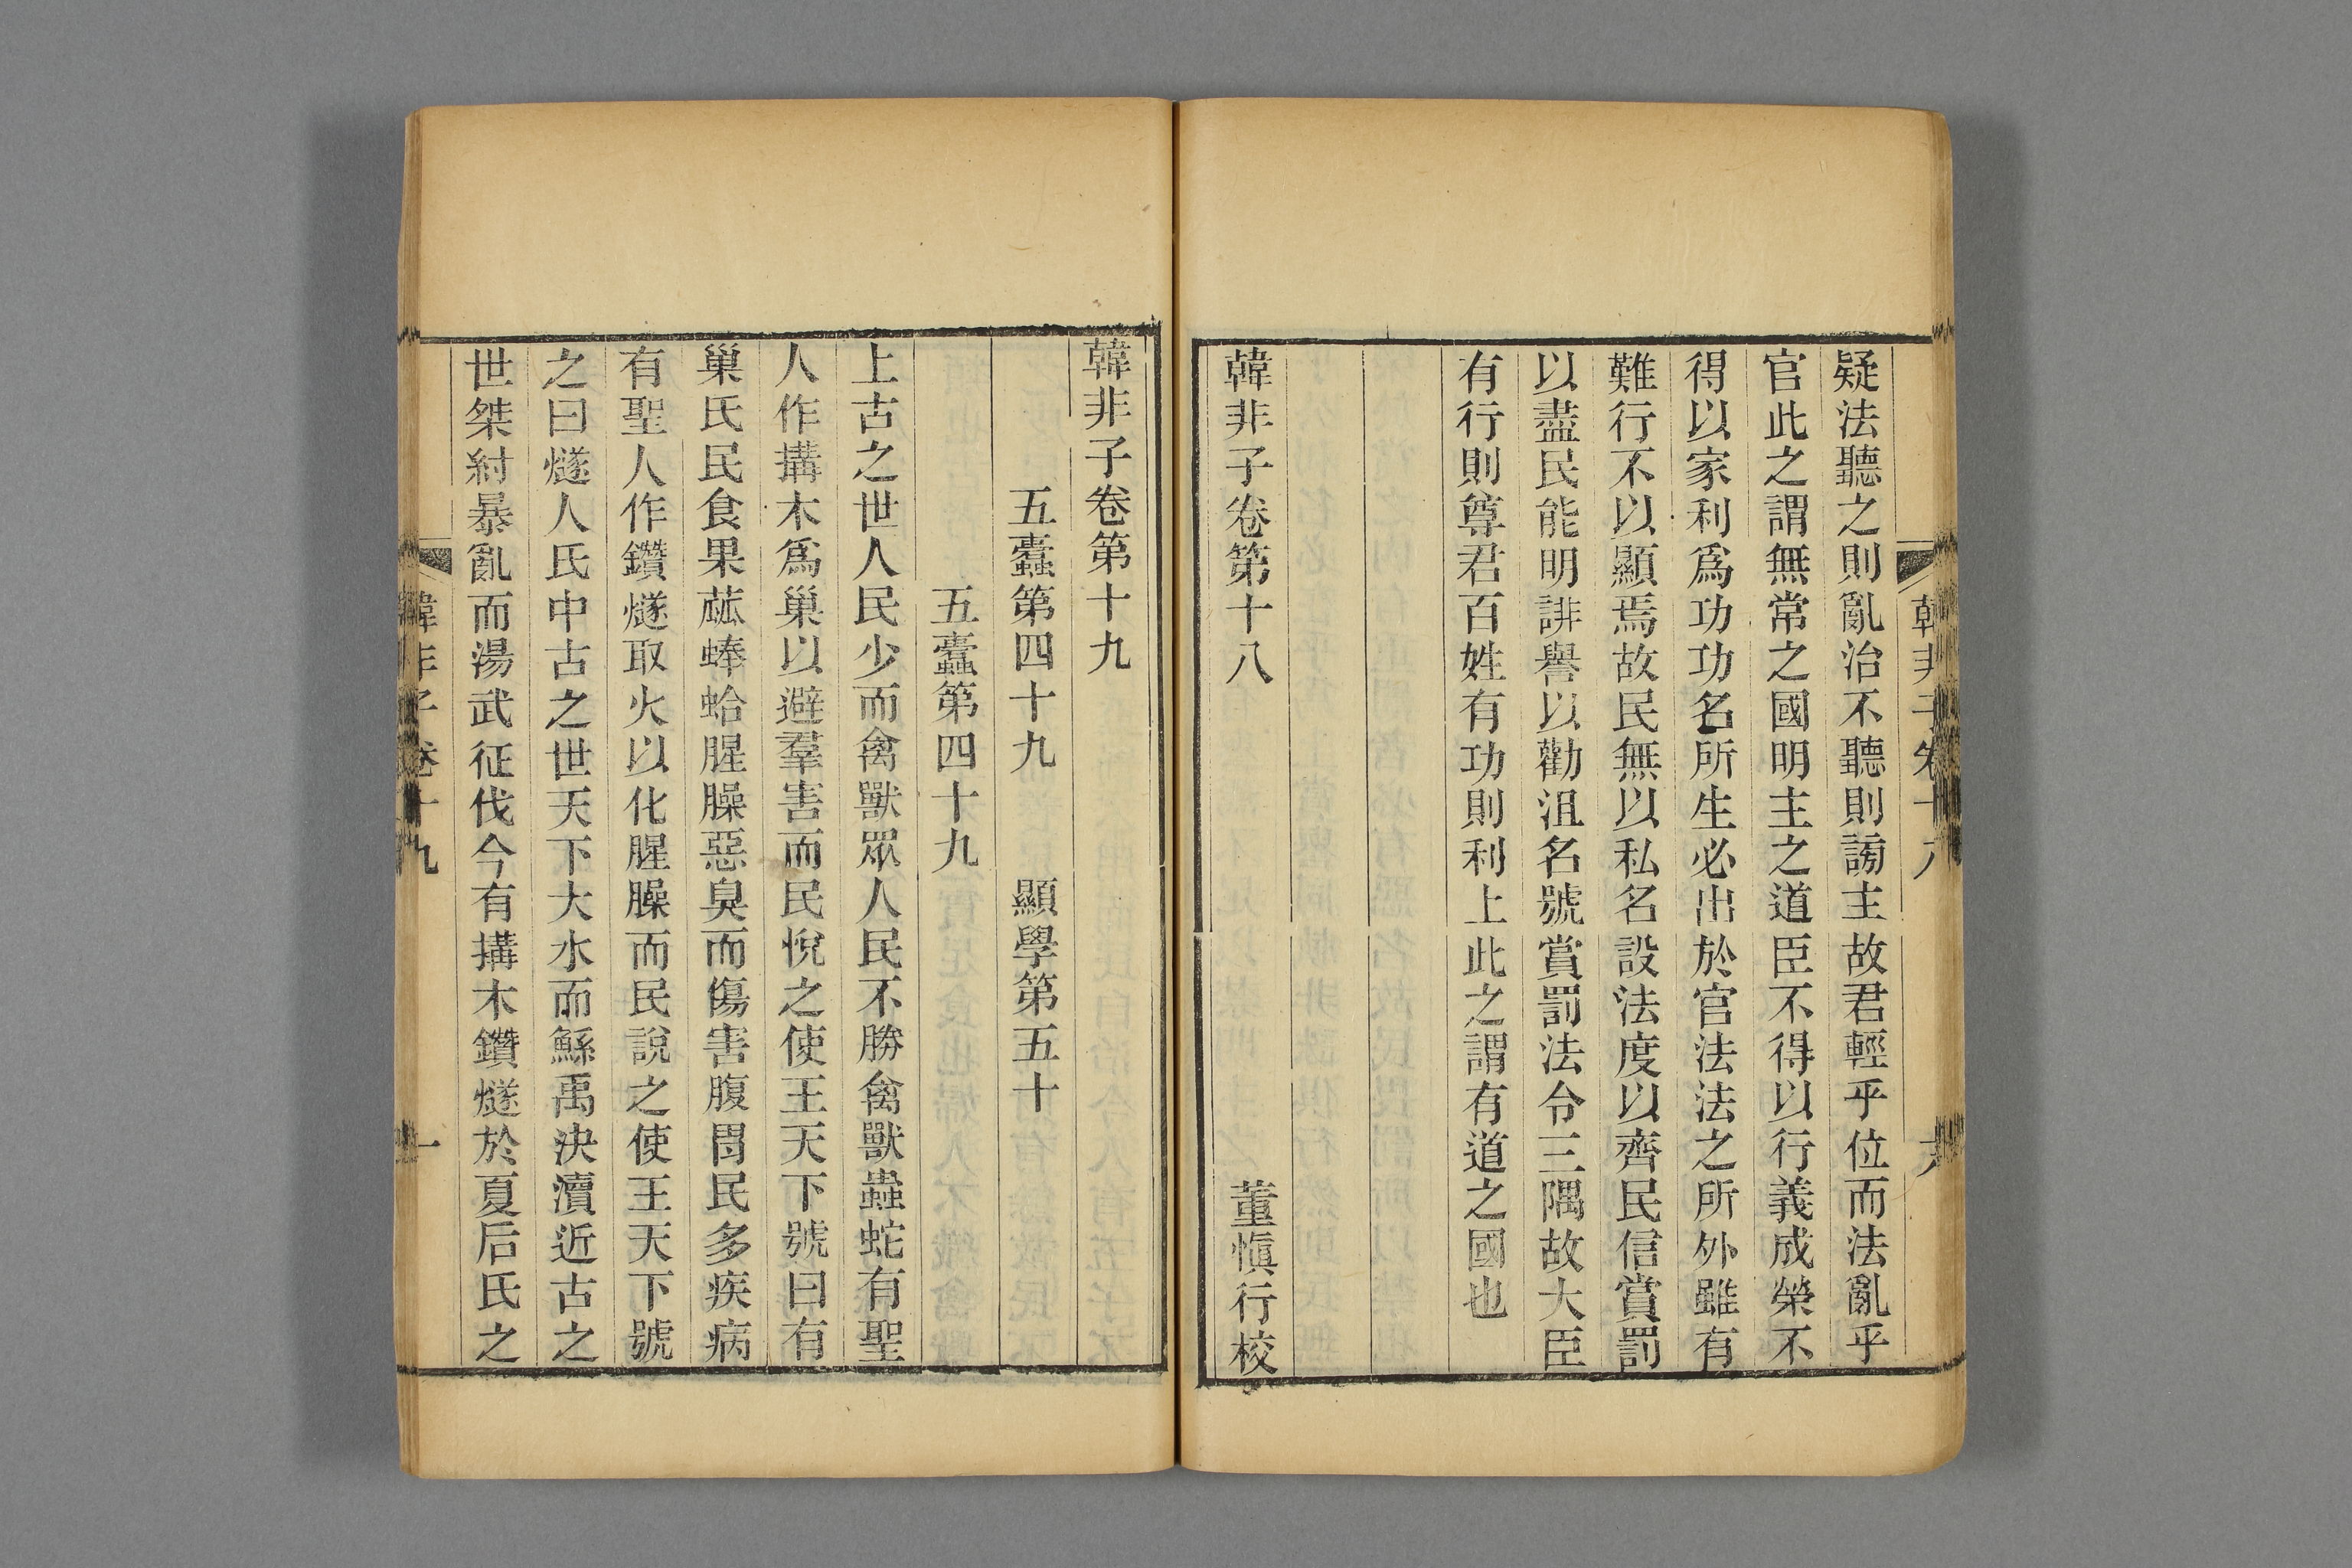 韓非子卷十八
疑法聽之則亂治不聽則謗主故君輕乎位而法亂乎
官此之謂無常之國明主之道臣不得以行義成榮不
得以家利爲功功名所生必出於官法法之所外雖有
難行不以顯焉故民無以私名設法度以齊民信賞罰
以盡民能明誹譽以勸沮名號賞罰法令三隅故大臣
有行則尊君百姓有功則利上此之謂有道之國也
韓非子卷第十八 董愼行校
韓非子卷第十九
五蠹第四十九 顯學第五十
五蠹第四十九
上古之世人民少而禽獸眾人民不勝禽獸蟲蛇有聖
人作搆木爲巢以避羣害而民悅之使王天下號曰有
巢氏民食果蓏蜯蛤腥臊惡臭而傷害腹胃民多疾病
有聖人作鑽燧取火以化腥臊而民說之使王天下號
之曰燧人氏中古之世天下大水而鯀禹決瀆近古之
世桀紂暴亂而湯武征伐今有搆木鑽燧於夏后氏之
韓非子卷十九 一